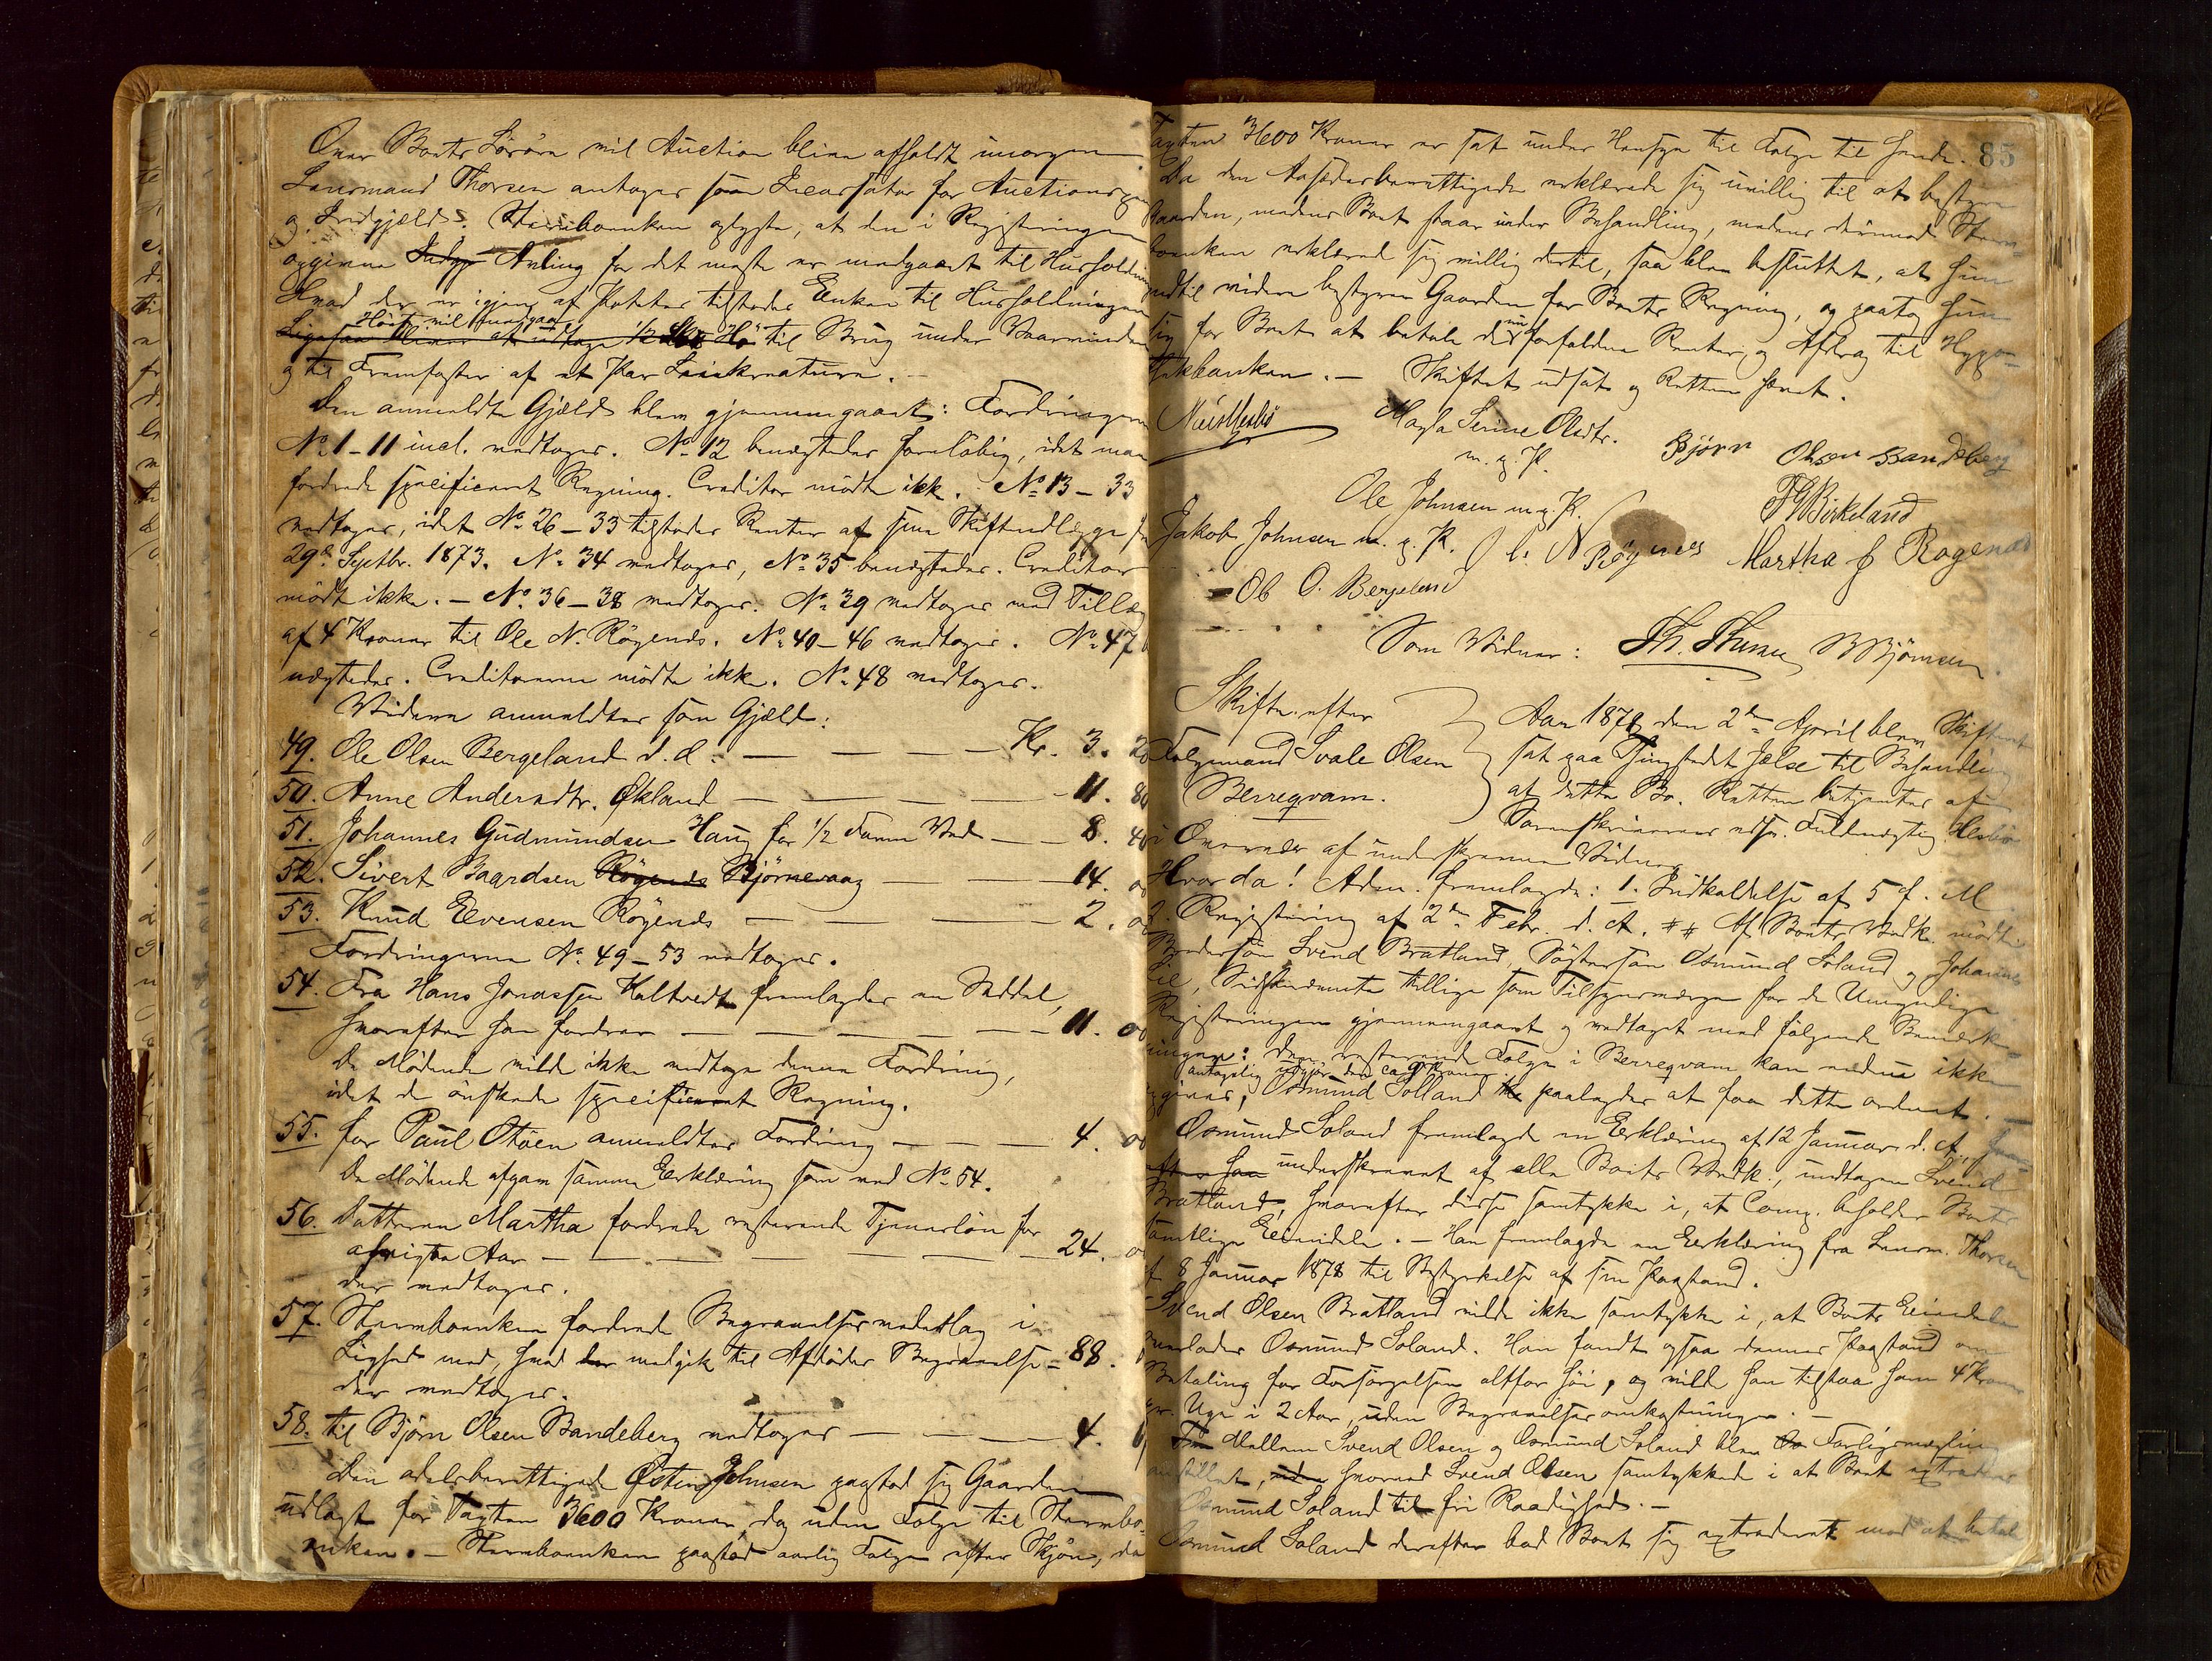 Over Boets Løsøre vil Auction blive afholdt imorgen
Lensmand Thorsen antages som Incassator for Auctions
og Indgjæld. Stervboenken oplyste, at den i Registeringen
opgivne Avling for det meste er medgaaet til Husholdn
Hvad der er igjen af Poteter tilstodes Enken til Husholdningen
Høet vil
Ligesaa bliver at udtage 1/2 Hø til Brug under Vaarvinden
og til Fremfostr af et Par Livkreature. —
Den anmeldte Gjæld blev gjennemgaaet: Fordringen
No 1-11 incl. vedtoges. No 12 benægtedes foreløbig, idet man
fordrede specificeret Regning. Creditor mødte ikke. No 13-33
vedtoges, idet No 26-33 tilstodes Renter af sine Skifteudlæg
29de Septbr. 1873. No 34 vedtoges, No 35 benægtedes. Creditor
mødte ikke. — No 36-38 vedtoges. No 39 vedtoges med Tillæg
af 4 Kroner til Ole N. Røgenæs. No 40-46 vedtoges. No 47
nægtedes. Creditorerne mødte ikke. No 48 vedtoges.
Videre anmeldtes som Gjæld:
49. Ole Olsen Bergeland s. d. — Kr. 3. 20
50. Anne Andersdtr. Økland — 11. 80
51. Johannes Gudmundsen Haug for 1/2 Favn Ved — 8. 40
52. Sivert Baardsen Røgenæs Bjørnevaag — 14. 00
53. Knud Evensen Røgenæs — 2. 00
Fordringerne No 49-53 vedtoges.
54. Fra Hans Jonassen Haltvedt fremlagdes en Seddel,
hvorefter han fordrer — 11. 00
De Mødende vilde ikke vedtage denne Fordring,
idet de ønskede specificeret Regning.
55. for Paul Støen anmeldtes Fordring — 4. 00
De Mødende afgav samme Erklæring som ved No 54.
56. Datteren Martha fordrede resterende Tjenerløn for
afvigte Aar — 24. 00
der vedtoges.
57. Stervboenken fordrede Begravelsesvederlag i
Lighed med, hvad der medgik til Afdødes Begravelse = 88.
der vedtoges.
58. til Bjørn Olsen Bandeberg vedtoges — 4.
Den odelsberettigede Østen Johnsen paastod sig Gaarden
udlagt for Taxten 3600 Kroner, dog uden Folge til Stervbo-
enken. — Stervboenken paastod aarlig Folge efter Skjøn, da
85
Taxten 3600 Kroner er sat under Hensyn til Folge til hende.
Da den Aasædesberettigede erklærede sig uvillig til at bestyre
Gaarden, medens Boet staar under Behandling, medens derimod Sterv-
boenken erklæred sig villig dertil, saa blev besluttet, at hun
indtil videre bestyrer Gaarden for Boets Regning, og paatog hun
sig for Boet at betale de forfaldne Renter og Afdrag til Hypo-
thekbanken. — Skiftet udsat og Retten hævet.
Magla Serine Olsdtr.
m. p. P.
Bjørn Olsen Bandeberg
Ole Johnsen m. p. P.
T G Birkeland
Jakob Johnsen m. p. P.
O. N. Røgenes
Martha J Rogenæs
Ole O. Bergeland
Som Vidner: Th. Thune B Bjørnsen
Skifte efter
Folgemand Svale Olsen
Berreqvam.
Aar 1878 den 2den April blev Skifteret
sat paa Thingstedet Jelse til Behandling
af dette Bo. Retten betjentes af
Sorenskriverens edsv. Fuldmægtig
i Overvær af underskrevne Vidner
Hvorda! Adm. fremlagde: 1. Indkaldelse af 5 f. M
2. Registering af 2den Febr. d. A. Af Boets Vedk. mødte
Brodersøn Svend Bratland, Søstersøn Osmund Soland og Johannes
Lie, Sidstnævnte tillige som Tilsynsværge for de Umyndige.
Registeringen gjennemgaaet og vedtaget med følgende Bemærk-
ninger: Den resterende Folge i Berreqvam kan endnu ikke
antagelig udgjør den ca 9 Kroner
opgives, Osmund Solland paalagdes at faa dette ordnet. —
Osmund Soland fremlagde en Erklæring af 12 Januar d. A.,
underskrevet af alle Boets Vedk., undtagen Svend
Bratland, hvorefter disse samtykke i, at Comp. beholder Boets
samtlige Eiendele. — Han fremlagde en Erklæring fra Lensm. Thorsen
af 8 Januar 1878 til Bestyrkelse af sin Paastand.
Svend Olsen Bratland vilde ikke samtykke i, at Boets Eiendele
overlades Osmund Soland. Han fandt ogsaa dennes Paastand om
Betaling for Forsørgelsen altfor høi, og vilde han tilstaa ham 4 Kroner
pr. Uge i 2 Aar, uden Begravelsesomkostninger. —
Mellem Svend Olsen og Osmund Soland blev Forligsmægling
anstillet, hvorved Svend Olsen samtykkede i at Boet extraderes
Osmund Soland til fri Raadighed. —
Osmund Soland derefter bad Boet sig extraderet mod at betale